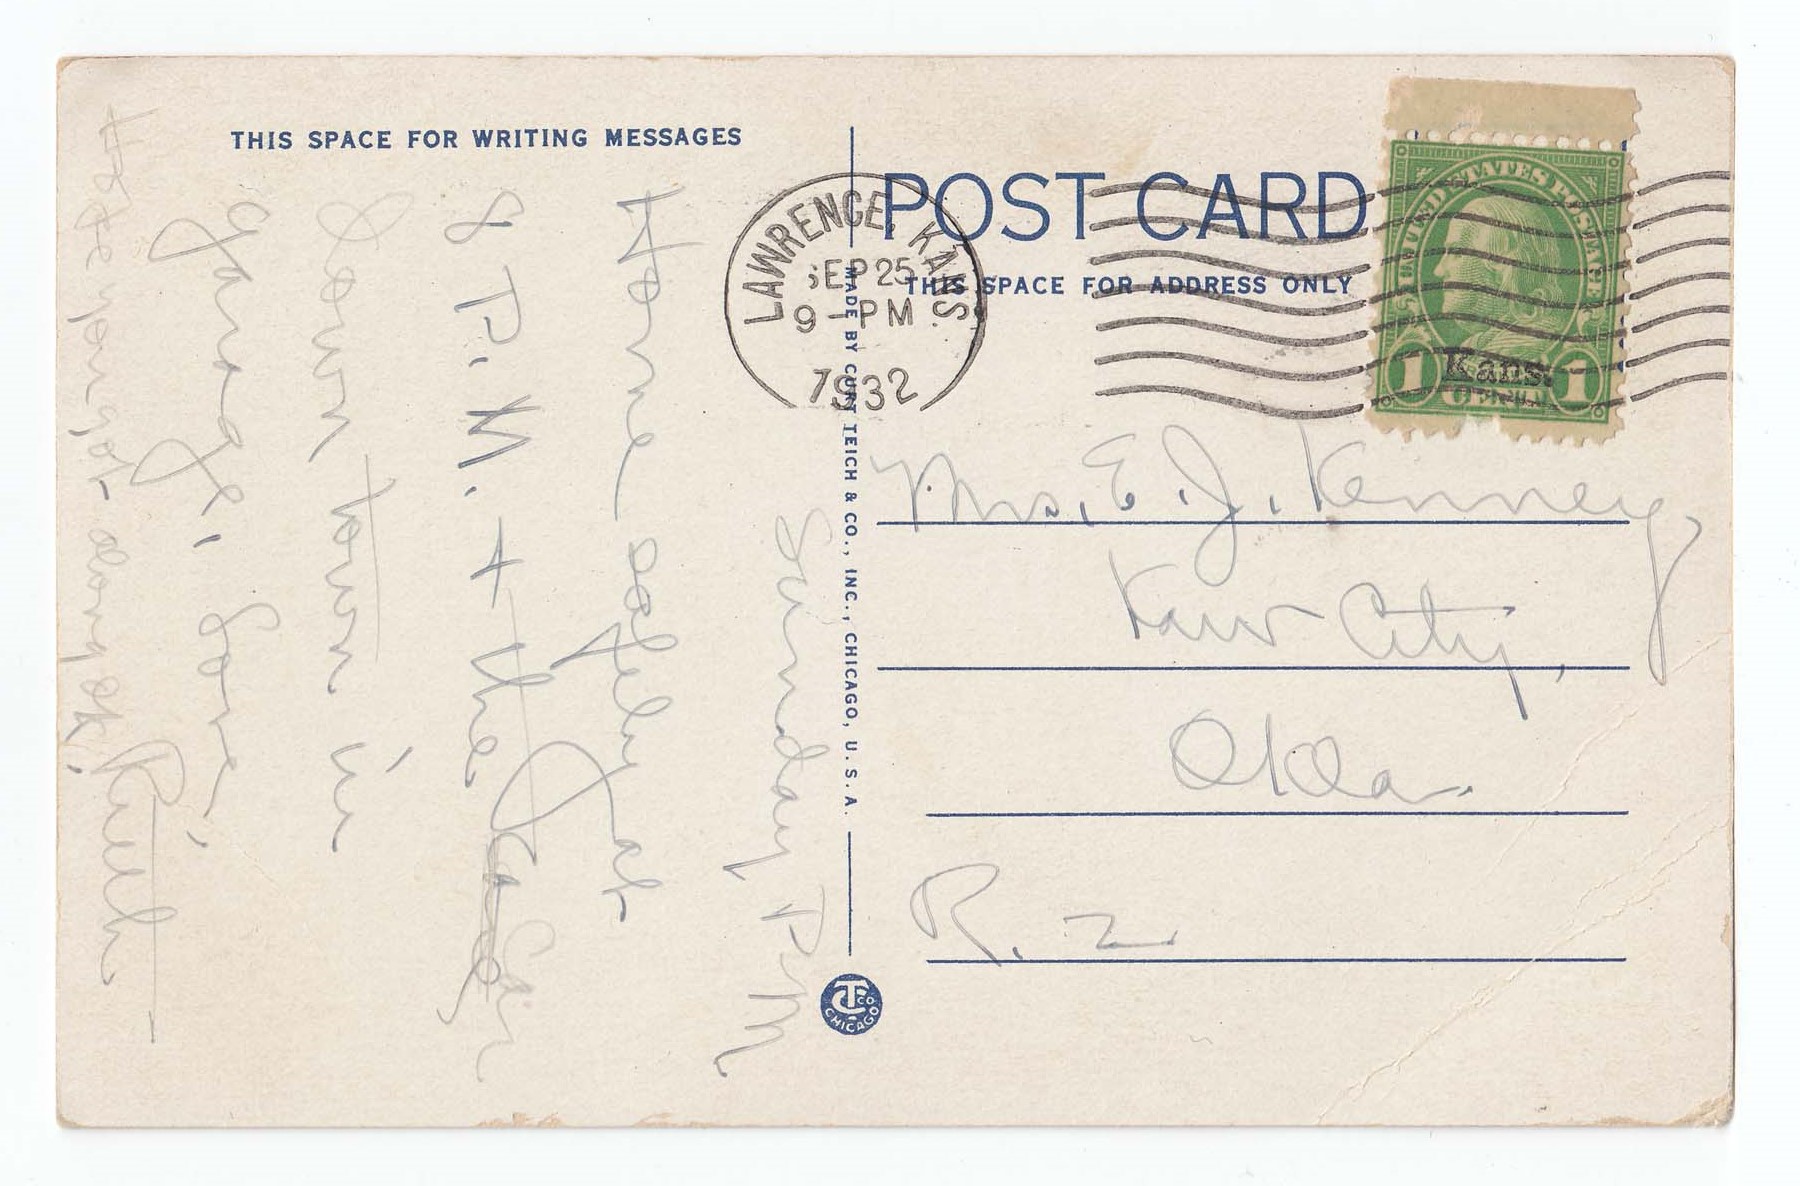 THIS SPACE FOR WRITING MESSAGES
Sunday PM
Home safely at
8 P.M. + the car
down town in
garage. Love,
Ruth
Hope you got along ok.
MADE BY CURT TEICH & CO., INC., CHICAGO, U.S.A.
CT CO
CHICAGO
POST CARD
THIS SPACE FOR ADDRESS ONLY
LAWRENCE, KANS.
SEP 25
9-PM
1932
UNITED STATES POSTAGE
Kans.
1 1
Mrs. E. J. Kenney,
Kaw City,
Okla.
R. 2